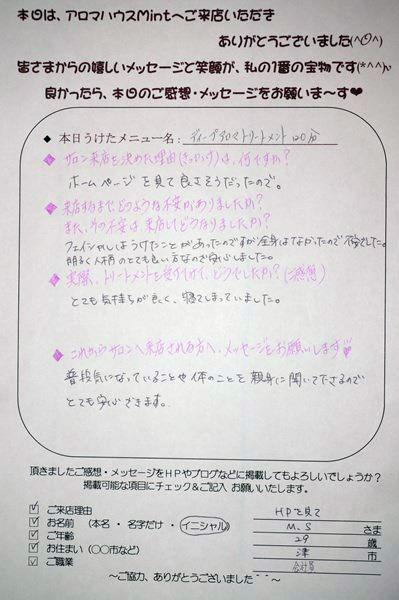 本日は、アロマハウスMintへご来店いただき
ありがとうございました(^O^)
皆さまからの嬉しいメッセージと笑顔が、私の1番の宝物です(*^^*)v
良かったら、本日のご感想・メッセージをお願いま～す❤
◆ 本日うけたメニュー名： ディープアロマトリートメント 120分
◆ サロン来店を決めた理由(きっかけ)は、何ですか?
ホームページを見て良さそうだったので。
◆ 来店するまで、どのような不安がありましたか?
また、その不安は、来店してどうなりましたか?
フェイシャルはうけたことがあったのですが全身はなかったので不安でした。
明るく人柄のとても良い方なので安心しました。
◆ 実際、トリートメントを受けてみて、どうでしたか? (ご感想)
とても気持ちが良く、寝てしまっていました。
◆ これからサロンへ来店される方へ、メッセージをお願いします♥
普段気になっていることや体のことを親身に聞いて下さるので
とても安心できます。
頂きましたご感想・メッセージをHPやブログなどに掲載してもよろしいでしょうか?
掲載可能な項目にチェック＆ご記入 お願いいたします。
☑ ご来店理由 HPを見て
☑ お名前 (本名 ・ 名字だけ ・ イニシャル) M.S さま
☑ ご年齢 29 歳
☑ お住まい (○○市など) 津 市
☑ ご職業 会社員
～ご協力、ありがとうございました＾－＾～